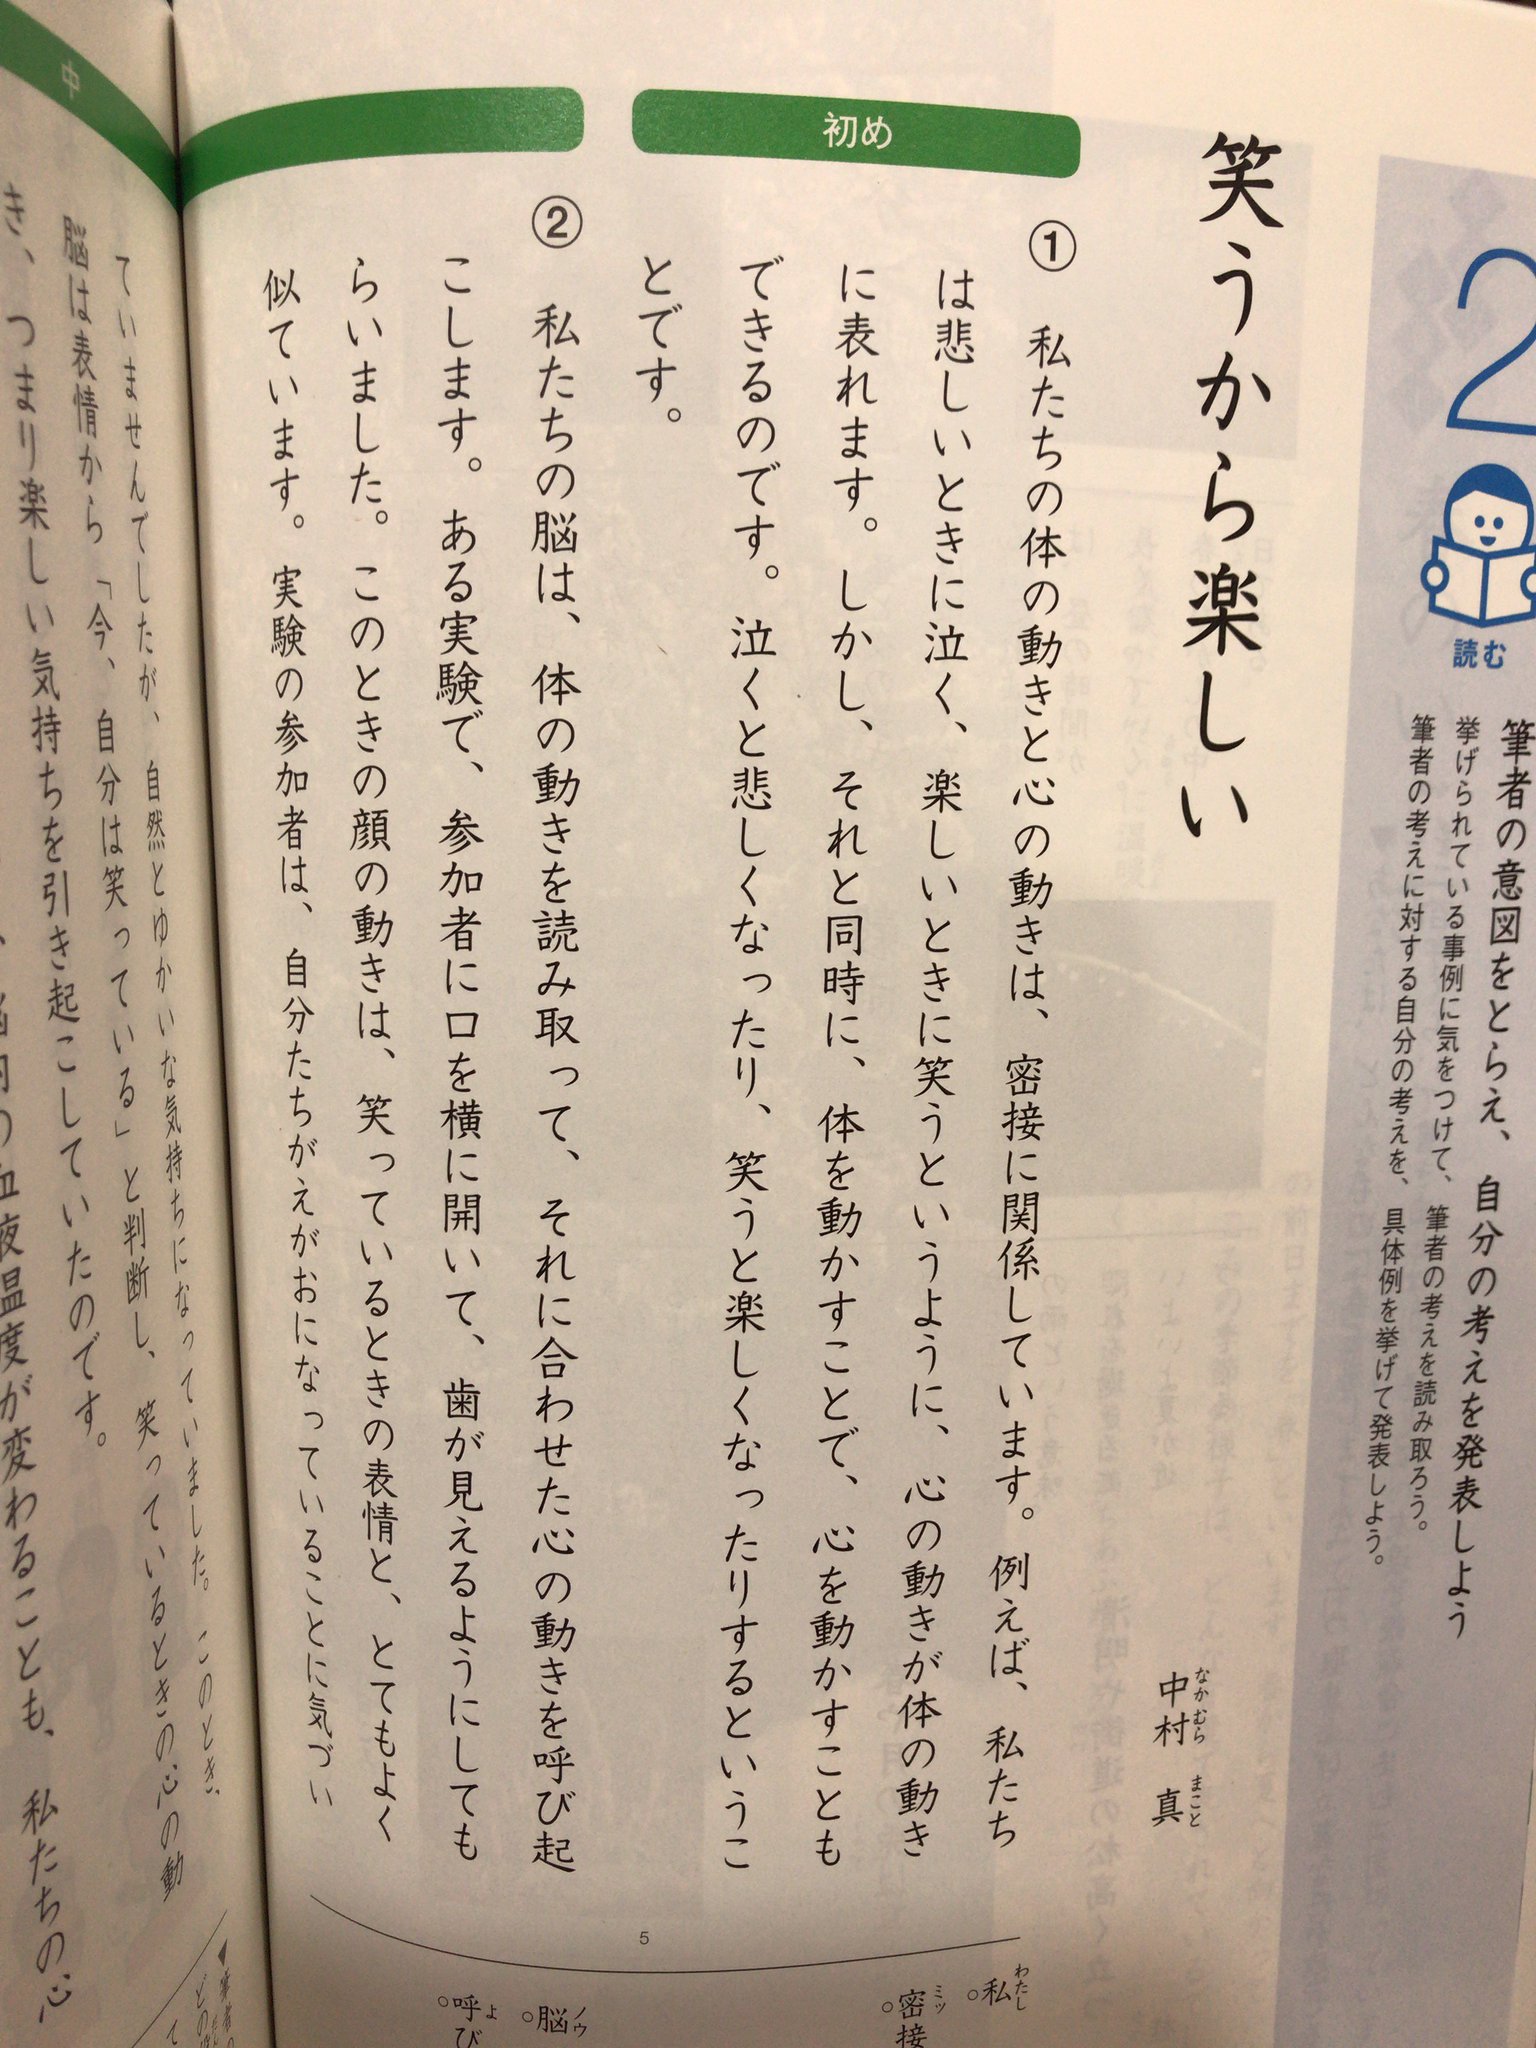 2
読む
筆者の意図をとらえ、自分の考えを発表しよう
挙げられている事例に気をつけて、筆者の考えを読み取ろう。
筆者の考えに対する自分の考えを、具体例を挙げて発表しよう。
笑うから楽しい
中村 真
なかむら まこと
初め
①
私たちの体の動きと心の動きは、密接に関係しています。例えば、私たち
は悲しいときに泣く、楽しいときに笑うというように、心の動きが体の動き
に表れます。しかし、それと同時に、体を動かすことで、心を動かすことも
できるのです。泣くと悲しくなったり、笑うと楽しくなったりするというこ
とです。
②
私たちの脳は、体の動きを読み取って、それに合わせた心の動きを呼び起
こします。ある実験で、参加者に口を横に開いて、歯が見えるようにしても
らいました。このときの顔の動きは、笑っているときの表情と、とてもよく
似ています。実験の参加者は、自分たちがえがおになっていることに気づい
5
私
わたし
密接
ミッ
脳
ノウ
呼び
よ
中
ていませんでしたが、自然とゆかいな気持ちになっていました。このとき、
脳は表情から「今、自分は笑っている」と判断し、笑っているときの心の動
き、つまり楽しい気持ちを引き起こしていたのです。
温度が変わることも、私たちの心